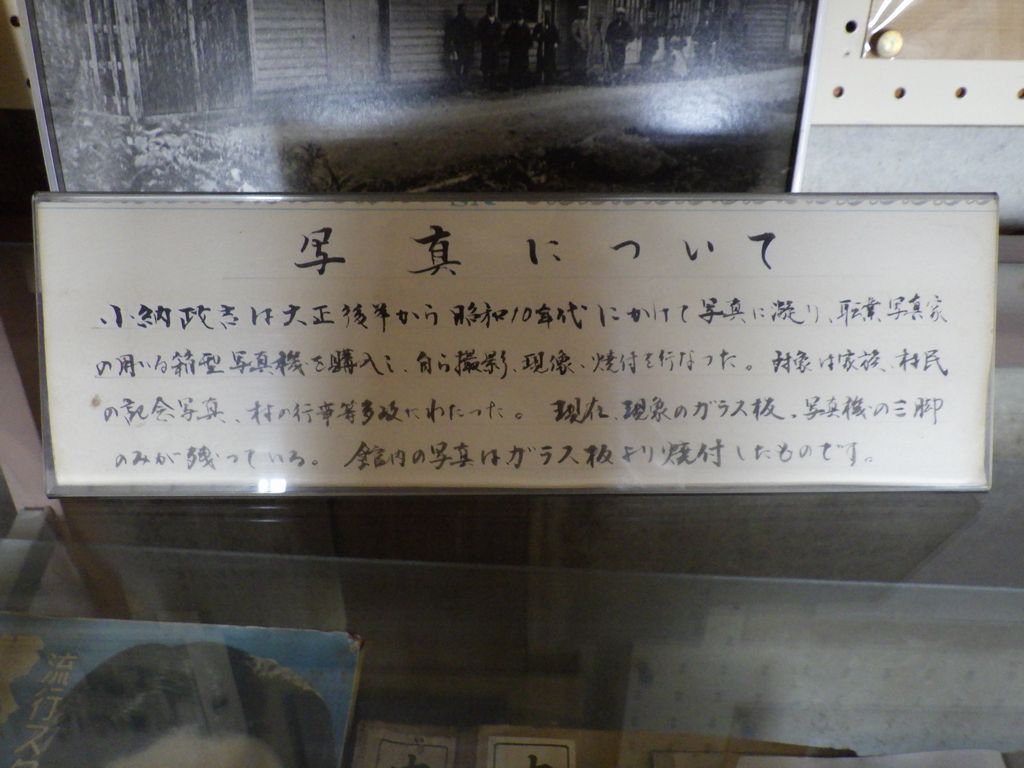 写真について
小納政吉は大正後半から昭和10年代にかけて写真に凝り、職業写真家
の用いる箱型写真機を購入し、自ら撮影、現像、焼付を行なった。対象は家族、村民
の記念写真、村の行事等多岐にわたった。現在、現象のガラス板、写真機の三脚
のみが残っている。館内の写真はガラス板より焼付したものです。
流行ス